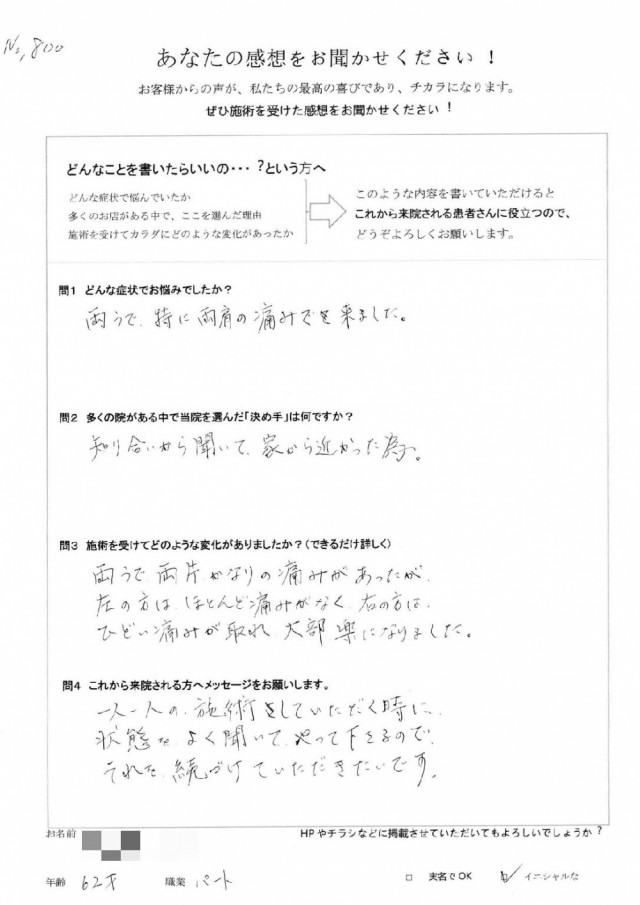 No,800
あなたの感想をお聞かせください！
お客様からの声が、私たちの最高の喜びであり、チカラになります。
ぜひ施術を受けた感想をお聞かせください！
どんなことを書いたらいいの・・・？という方へ
どんな症状で悩んでいたか
多くのお店がある中で、ここを選んだ理由
施術を受けてカラダにどのような変化があったか
このような内容を書いていただけると
これから来院される患者さんに役立つので、
どうぞよろしくお願いします。
問1 どんな症状でお悩みでしたか？
両うで、特に両肩の痛みで来ました。
問2 多くの院がある中で当院を選んだ「決め手」は何ですか？
知り合いから聞いて、家から近かった為。
問3 施術を受けてどのような変化がありましたか？（できるだけ詳しく）
両うで、両片かなりの痛みがあったが、
左の方は、ほとんど痛みがなく、右の方は、
ひどい痛みが取れ、大部楽になりました。
問4 これから来院される方へメッセージをお願いします。
一人一人の、施術をしていただく時に、
状態を、よく聞いて、やって下さるので、
それを、続づけていただきたいです。
お名前
HPやチラシなどに掲載させていただいてもよろしいでしょうか？
年齢 62才 職業 パート □ 実名でOK ☑ イニシャルな